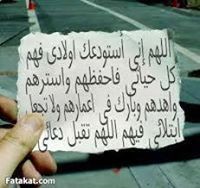 اللهم إني استودعك اولادى فهم
كل حياتي فاحفظهم واسترهم
واهدهم وبارك في اعمارهم ولا تجعل
ابتلائي فيهم اللهم تقبل دعائي
Fatakat.com